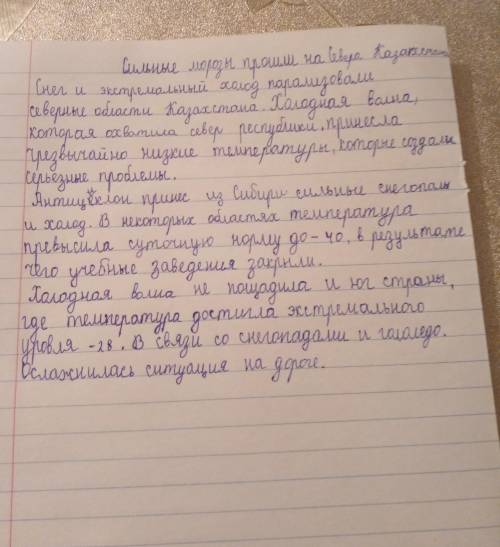 Сильные морозы прошли на Севере Казахстана
Снег и экстремальный холод парализовали
северные области Казахстана. Холодная волна,
которая охватила север республики, принесла
чрезвычайно низкие температуры, которые создали
серьезные проблемы.
Антициклон принес из Сибири сильные снегопады
и холод. В некоторых областях температура
превысила суточную норму до -40, в результате
чего учебные заведения закрыли.
Холодная волна не пощадила и юг страны,
где температура достигла экстремального
уровля -28. В связи со снегопадами и гололедо.
Осложнилась ситуация на дороге.